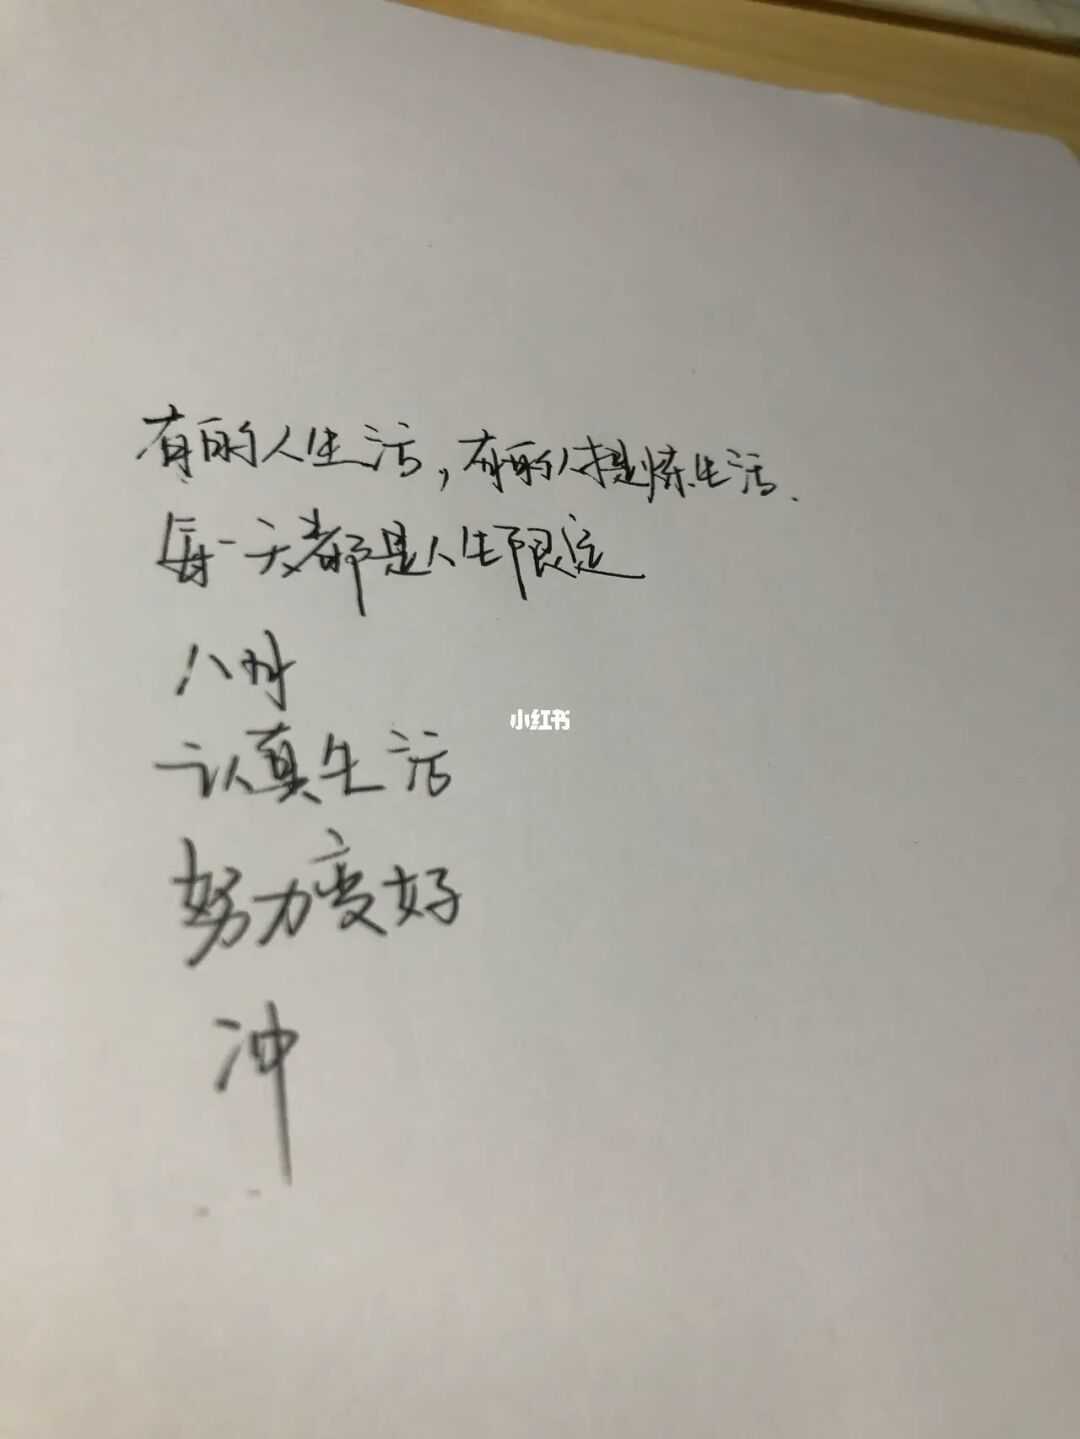 有的人生活，有的人提炼生活.
每一天都是人生限定
认真生活
小红书
努力变好
冲